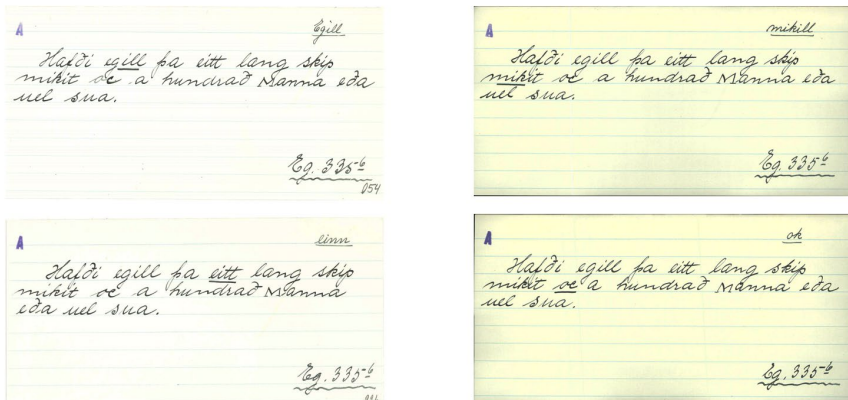 A
Egill
Hafði egill þa eitt lang skip
mikit oc a hundrað Manna eða
uel sua.
Eg. 335-6
054
A
mikill
Hafði egill þa eitt lang skip
mikit oc a hundrað Manna eða
uel sua.
Eg. 335-6
A
einn
Hafði egill þa eitt lang skip
mikit oc a hundrað Manna
eða uel sua.
Eg. 335-6
A
ok
Hafði egill þa eitt lang skip
mikit oc a hundrað Manna eða
uel sua.
Eg. 335-6